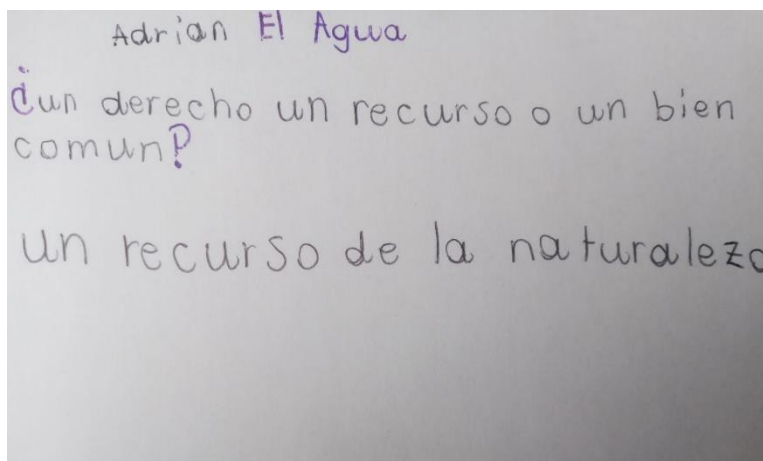 Adrian El Agua
¿un derecho un recurso o un bien
comun?
un recurso de la naturaleza